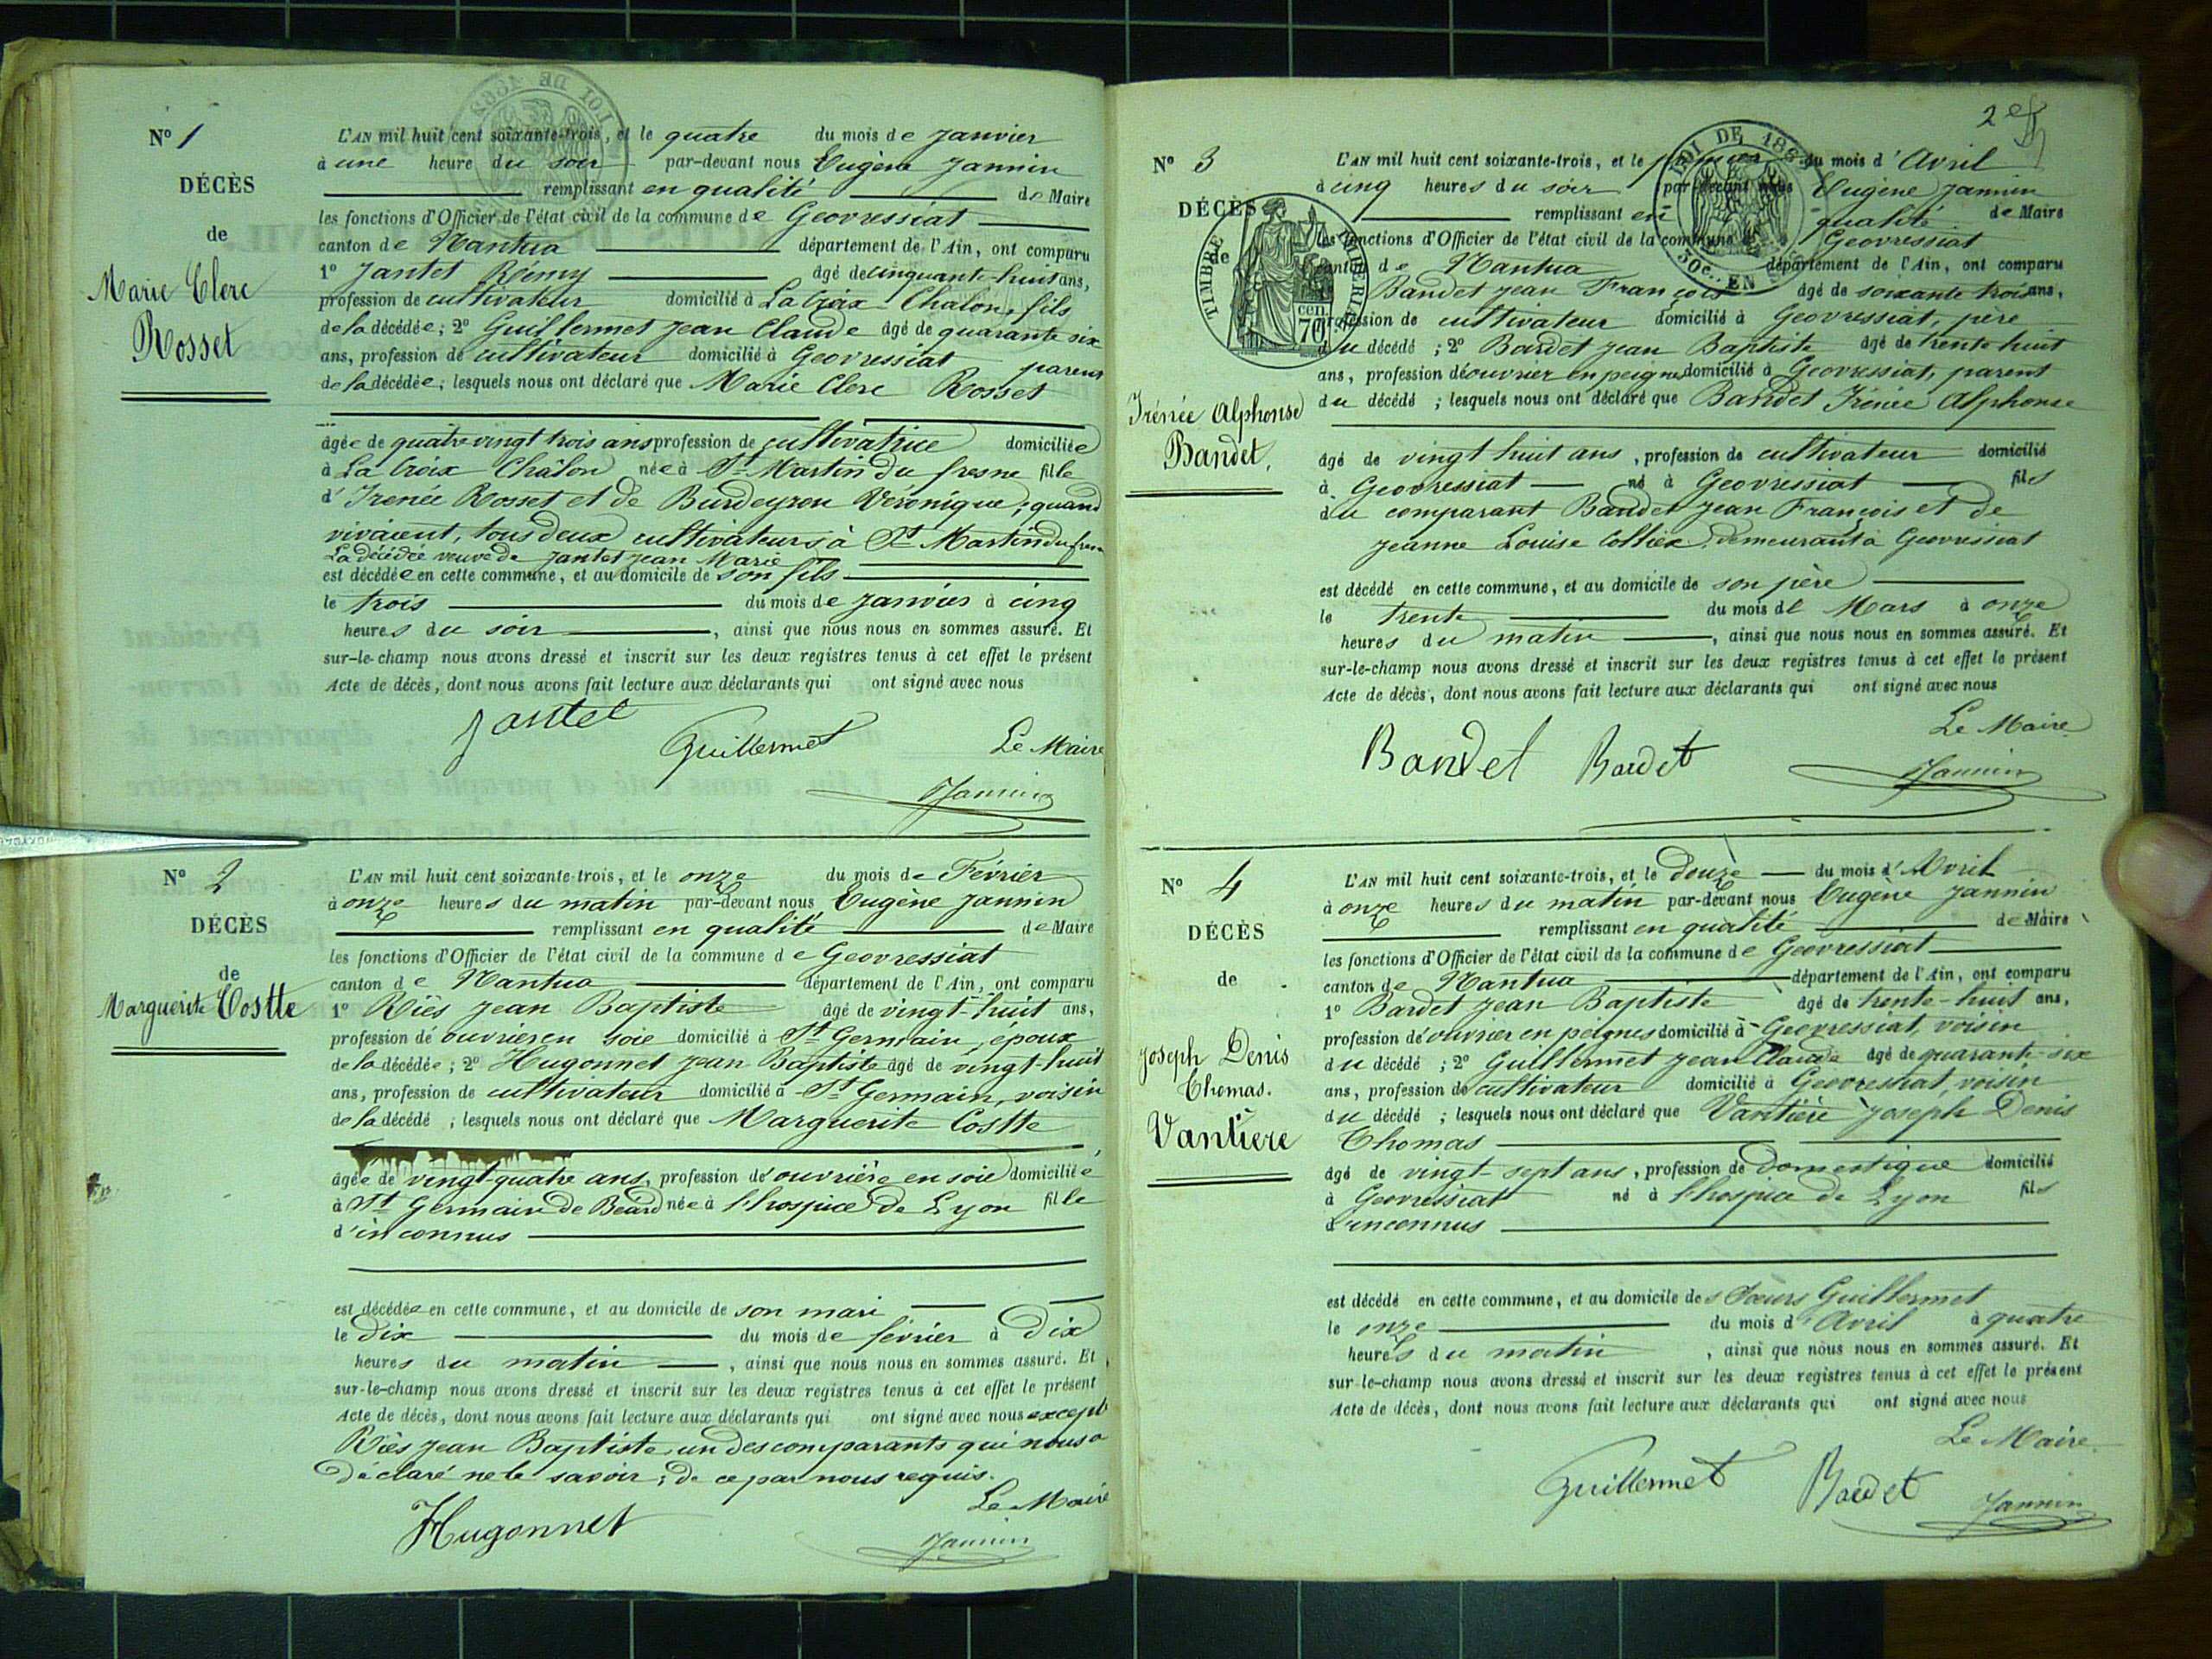 N° 1
DÉCÈS
de
Marie Clerc
Rosset
L'AN mil huit cent soixante-trois, et le quatre du mois de Janvier
à une heure du soir par-devant nous Eugène Jannin
remplissant en qualité de Maire
les fonctions d'Officier de l'état civil de la commune de Geovressiat
canton de Nantua département de l'Ain, ont comparu
1° Jantet Rémy âgé de cinquante-huit ans,
profession de cultivateur domicilié à La Croix Chalon, fils
de la décédée; 2° Guillermet Jean Claude âgé de quarante six
ans, profession de cultivateur domicilié à Geovressiat parent
de la décédée; lesquels nous ont déclaré que Marie Clerc Rosset
âgée de quatre vingt trois ans profession de cultivatrice domiciliée
à La Croix Châlon née à St Martin du fresne fille
d'Irenée Rosset et de Burdeyron Véronique; quand
vivaient, tous deux cultivateurs à St Martin du fresne
La décédée veuve de Jantet Jean Marie
est décédée en cette commune, et au domicile de son fils
le trois du mois de Janvier à cinq
heures du soir, ainsi que nous nous en sommes assuré. Et
sur-le-champ nous avons dressé et inscrit sur les deux registres tenus à cet effet le présent
Acte de décès, dont nous avons fait lecture aux déclarants qui ont signé avec nous
Jantet
Guillermet
Le Maire
Jannin
N° 2
DÉCÈS
de
Marguerite Costte
L'AN mil huit cent soixante-trois, et le onze du mois de Février
à onze heures du matin par-devant nous Eugène Jannin
remplissant en qualité de Maire
les fonctions d'Officier de l'état civil de la commune de Geovressiat
canton de Nantua département de l'Ain, ont comparu
1° Riës Jean Baptiste âgé de vingt-huit ans,
profession de ouvrier en soie domicilié à St Germain, époux
de la décédée; 2° Hugonnet Jean Baptiste âgé de vingt-huit
ans, profession de cultivateur domicilié à St Germain, voisin
de la décédé; lesquels nous ont déclaré que Marguerite Costte
âgée de vingt-quatre ans, profession d'ouvrière en soie domiciliée
à St Germain de Béard née à l'hospice de Lyon fille
d'inconnus
est décédée en cette commune, et au domicile de son mari
le Dix du mois de février à Dix
heures du matin, ainsi que nous nous en sommes assuré. Et
sur-le-champ nous avons dressé et inscrit sur les deux registres tenus à cet effet le présent
Acte de décès, dont nous avons fait lecture aux déclarants qui ont signé avec nous excepté
Riës Jean Baptiste un des comparants qui nous a
déclaré ne le savoir; de ce par nous requis.
Le Maire
Hugonnet
Jannin
2e
N° 3
DÉCÈS
de
TIMBRE IMPERIAL
70 cen.
LOI DE 1862
50c. EN
Irénée Alphonse
Bandet,
L'AN mil huit cent soixante-trois, et le premier du mois d'Avril
à cinq heures du soir par-devant nous Eugène Jannin
remplissant en qualité de Maire
les fonctions d'Officier de l'état civil de la commune de Geovressiat
canton de Nantua département de l'Ain, ont comparu
Bandet Jean François âgé de soixante trois ans,
profession de cultivateur domicilié à Geovressiat, père
du décédé; 2° Bardet Jean Baptiste âgé de trente huit
ans, profession d'ouvrier en peignes domicilié à Geovressiat, parent
du décédé; lesquels nous ont déclaré que Bandet Irénée Alphonse
âgé de vingt huit ans, profession de cultivateur domicilié
à Geovressiat né à Geovressiat fils
du comparant Bandet Jean François et de
Jeanne Louise Colliex, demeurant à Geovressiat
est décédé en cette commune, et au domicile de son père
le trente du mois de Mars à onze
heures du matin, ainsi que nous nous en sommes assuré. Et
sur-le-champ nous avons dressé et inscrit sur les deux registres tenus à cet effet le présent
Acte de décès, dont nous avons fait lecture aux déclarants qui ont signé avec nous
Le Maire
Bandet Bardet
Jannin
N° 4
DÉCÈS
de
Joseph Denis
Thomas.
Vantiere
L'AN mil huit cent soixante-trois, et le Douze du mois d'Avril
à onze heures du matin par-devant nous Eugène Jannin
remplissant en qualité de Maire
les fonctions d'Officier de l'état civil de la commune de Geovressiat
canton de Nantua département de l'Ain, ont comparu
1° Bardet Jean Baptiste âgé de trente-huit ans,
profession d'ouvrier en peignes domicilié à Geovressiat, voisin
du décédé; 2° Guillermet Jean Claude âgé de quarante-six
ans, profession de cultivateur domicilié à Geovressiat, voisin
du décédé; lesquels nous ont déclaré que Vantière Joseph Denis
Thomas
âgé de vingt-sept ans, profession de Domestique domicilié
à Geovressiat né à l'hospice de Lyon fils
d'inconnus
est décédé en cette commune, et au domicile des Sœurs Guillermet
le onze du mois d'Avril à quatre
heures du matin, ainsi que nous nous en sommes assuré. Et
sur-le-champ nous avons dressé et inscrit sur les deux registres tenus à cet effet le présent
Acte de décès, dont nous avons fait lecture aux déclarants qui ont signé avec nous
Le Maire
Guillermet Bardet
Jannin